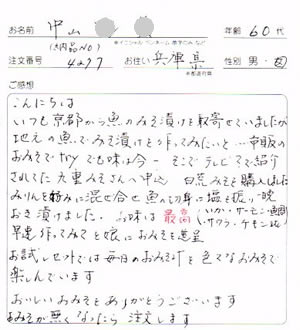 お名前 中山
年齢 60代
(納品NO)
※イニシャル・ペンネーム・苗字のみなど
注文番号 4297
お住い 兵庫県
※都道府県
性別 男・女
ご感想
こんにちは
いつも京都から魚のみそ漬けを取寄せていましたが
地元の魚でみそ漬けを作ってみたいと…市販の
おみそでtryでも味は今一 そこでテレビで紹介
されてた九重みそさんへ 白荒みそを購入しました
みりんを好みに混ぜ合せ魚の切身に塩を振り一晩
おき漬けました。お味は最高(いか・サーモン・鯛
・サワラ・チキンetc)
早速作ってみてと娘におみそを進呈
お試しセットでは毎日のおみそ汁を色々なおみそで
楽しんでいます
おいしいおみそをありがとうございます
おみそが無くなったら注文します